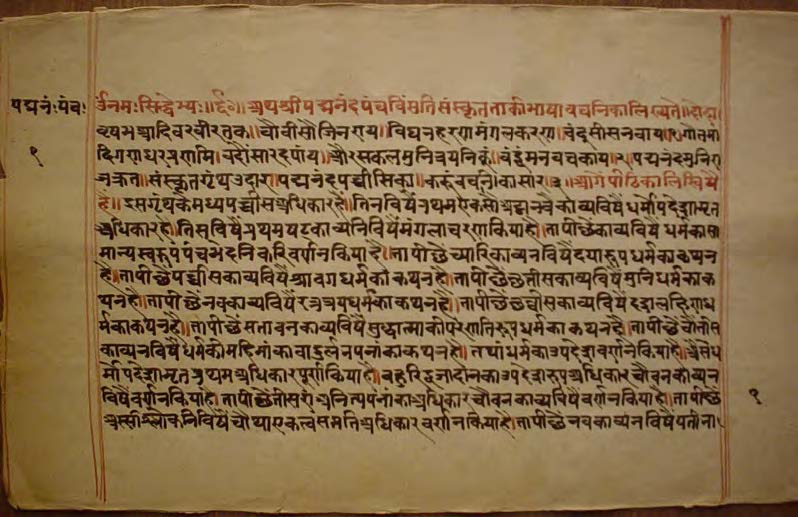 पद्मनंः पंचः
र्उनमः सिद्धेभ्यः॥ अथ श्री पद्मनंद पंचविंसति संस्कृत ताकी भाषा वचनिका लिख्यते॥
वृषभ आदि वरवीर तक। चौवीसौ जिनराय। विघन हरण मंगल करण। वंदू सीस नवाय। गोतमा
दि गणधर। वंदौं सारद पाय। और सकल मुनि वंदूं मन वच काय। पद्मनंद मुनिरा
संस्कृत ग्रंथ उदार। पद्मनंद पच्चीसिका। करुं वचनीका सार॥ आगे पीठिका लिखिये
है॥ इस ग्रंथ के मध्य पच्चीस अधिकार है। तिन विषैं प्रथम एक सौ अठानवै काव्य विषै धर्मोपदेशामृत
अधिकार है। तिस विषैं प्रथम षट काव्यनि विषैं मंगलाचरण किया है। ता पीछै काव्य विषैं धर्म का सा
मान्य स्वरूप पंच भेदनि करि वर्णन किया है। ता पीछै च्यारि काव्यन विषैं दया रूप धर्म का कथन
है। ता पीछै पच्चीस काव्य विषैं श्रावग धर्म कौ कथन है। ता पीछै छतीस काव्य विषैं मुनि धर्म का क
थन है। ता पीछै नव काव्य विषैं रत्नत्रय धर्म का कथन है। ता पीछै काव्य विषै दशलक्षिण ध
र्म का कथन है। ता पीछै सतावन काव्य विषैं सुद्धात्मा की परणति रूप धर्म का कथन है। ता पीछै चौतीस
काव्यन विषैं धर्म की महिमा का वा दुर्लभपनां का कथन है। तथा धर्म का उपदेश वर्णन किया है। ऐसे ध
र्मोपदेशामृत प्रथम अधिकार पूर्ण किया है। बहुरि दूजा दान का उपदेश रूप अधिकार चौवन काव्यन
विषैं वर्णन किया है। ता पीछै तीसरा अनित्य पनां का अधिकार काव्य विषैं वर्णन किया है। ता पीछै
अस्सी श्लोकनि विषैं चौथा एकत्व सप्तति अधिकार वर्णन किया है। ता पीछै नव काव्यन विषैं पती ना
१
१